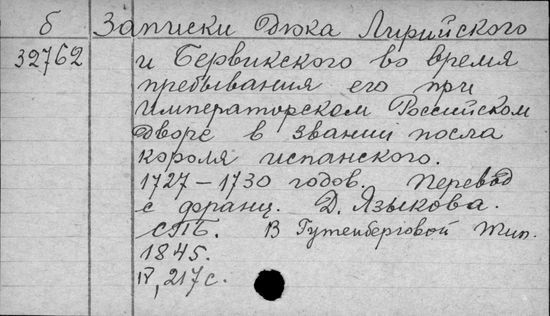 б Записки Дюка Лирийского
32762 и Бервикского во время
пребывания его при
императорском Российском
дворе в звании посла
короля испанского.
1727 – 1730 годов. Перевод
с франц. Д. Языкова.
СПБ. В Гутенберговой Тип.
1845.
IV, 217 с.